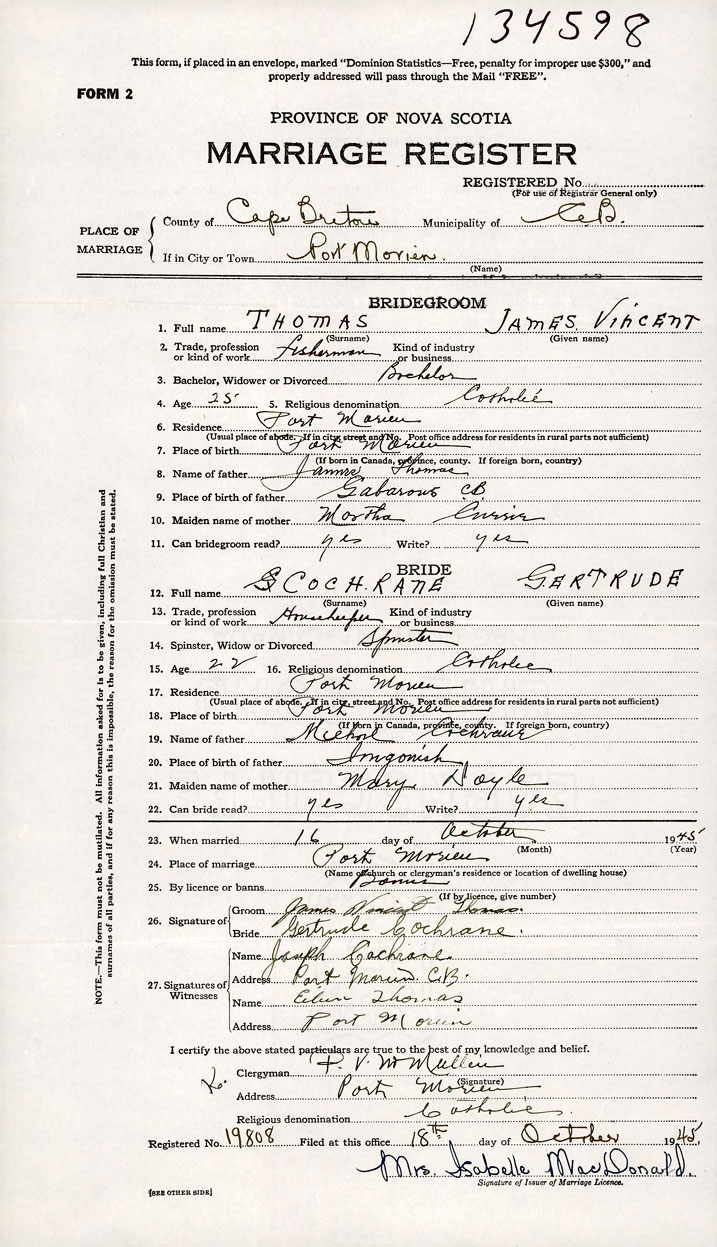 134598
This form, if placed in an envelope, marked “Dominion Statistics—Free, penalty for improper use $300,” and
properly addressed will pass through the Mail “FREE”.
FORM 2
PROVINCE OF NOVA SCOTIA
MARRIAGE REGISTER
REGISTERED No.
(For use of Registrar General only)
PLACE OF MARRIAGE
County of Cape Breton Municipality of C.B.
If in City or Town Port Morien.
(Name)
BRIDEGROOM
1. Full name THOMAS JAMES VINCENT
(Surname) (Given name)
2. Trade, profession or kind of work fisherman Kind of industry or business
3. Bachelor, Widower or Divorced Bachelor
4. Age 25 5. Religious denomination Catholic
6. Residence Port Morien
(Usual place of abode. If in city, street and No. Post office address for residents in rural parts not sufficient)
7. Place of birth Port Morien
(If born in Canada, province, county. If foreign born, country)
8. Name of father James Thomas
9. Place of birth of father Gabarous CB
10. Maiden name of mother Martha Currie
11. Can bridegroom read? yes Write? yes
BRIDE
12. Full name COCHRANE GERTRUDE
(Surname) (Given name)
13. Trade, profession or kind of work Housekeeper Kind of industry or business
14. Spinster, Widow or Divorced Spinster
15. Age 22 16. Religious denomination Catholic
17. Residence Port Morien
(Usual place of abode. If in city, street and No. Post office address for residents in rural parts not sufficient)
18. Place of birth Port Morien
(If born in Canada, province, county. If foreign born, country)
19. Name of father Michael Cochrane
20. Place of birth of father Ingonish
21. Maiden name of mother Mary Doyle
22. Can bride read? yes Write? yes
23. When married 16 day of October 1945
(Month) (Year)
24. Place of marriage Port Morien
(Name of church or clergyman's residence or location of dwelling house)
25. By licence or banns Banns
(If by licence, give number)
26. Signature of
Groom James Vincent Thomas.
Bride Gertrude Cochrane.
27. Signatures of Witnesses
Name Joseph Cochrane
Address Port Morien C.B.
Name Eileen Thomas
Address Port Morien
I certify the above stated particulars are true to the best of my knowledge and belief.
Clergyman P. V. McMullin
(Signature)
Address Port Morien
Religious denomination Catholic.
Registered No. 19808 Filed at this office 18th day of October 1945.
Mrs. Isabelle MacDonald.
Signature of Issuer of Marriage Licence.
[SEE OTHER SIDE]
NOTE.—This form must not be mutilated. All information asked for is to be given, including full Christian and
surnames of all parties, and if for any reason this is impossible, the reason for the omission must be stated.